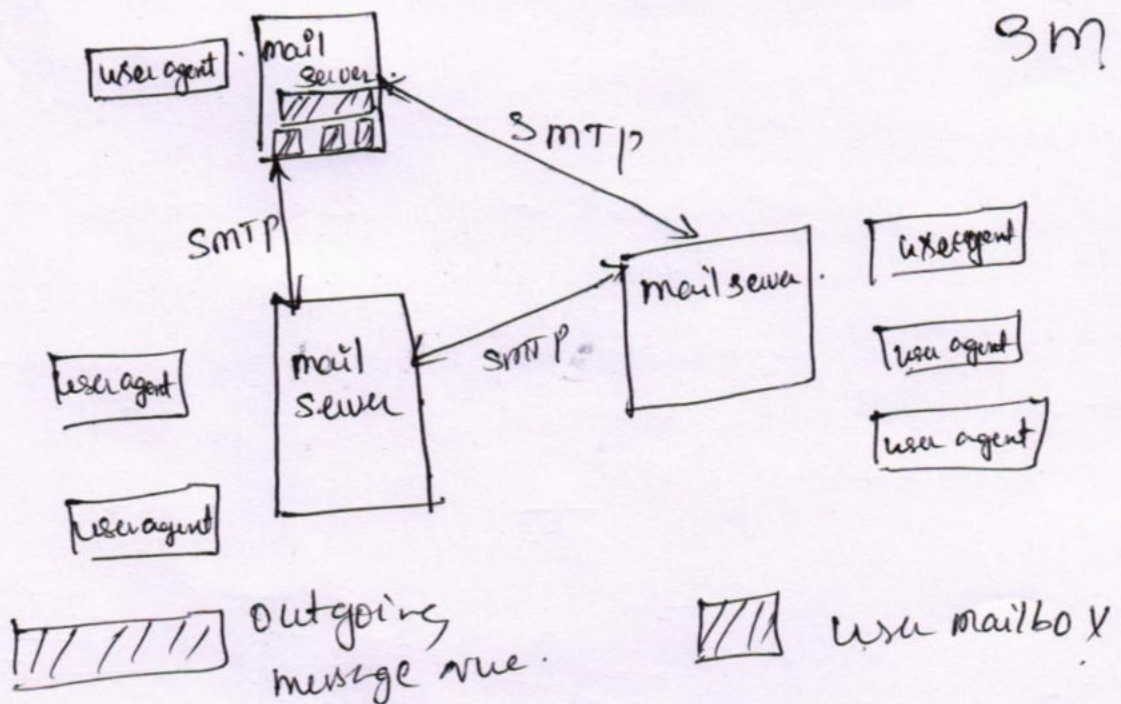 3m
user agent
mail
server
SMTP
SMTP
user agent
mail server
mail
server
SMTP
user agent
user agent
user agent
user agent
outgoing
message
user mailbox